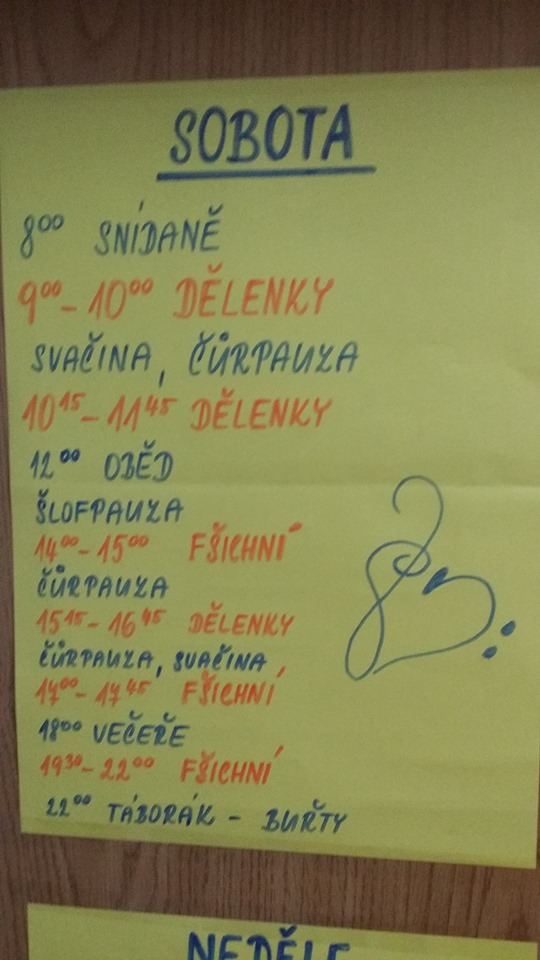 SOBOTA
8⁰⁰ SNÍDANĚ
9⁰⁰-10⁰⁰ DĚLENKY
SVAČINA, ČŮRPAUZA
10¹⁵-11⁴⁵ DĚLENKY
12⁰⁰ OBĚD
ŠLOFPAUZA
14⁰⁰-15⁰⁰ FŠICHNÍ
ČŮRPAUZA
15¹⁵-16⁴⁵ DĚLENKY
ČŮRPAUZA, SVAČINA
17⁰⁰-17⁴⁵ FŠICHNÍ
18⁰⁰ VEČEŘE
19³⁰-22⁰⁰ FŠICHNÍ
22⁰⁰ TÁBORÁK - BUŘTY
NEDĚLE